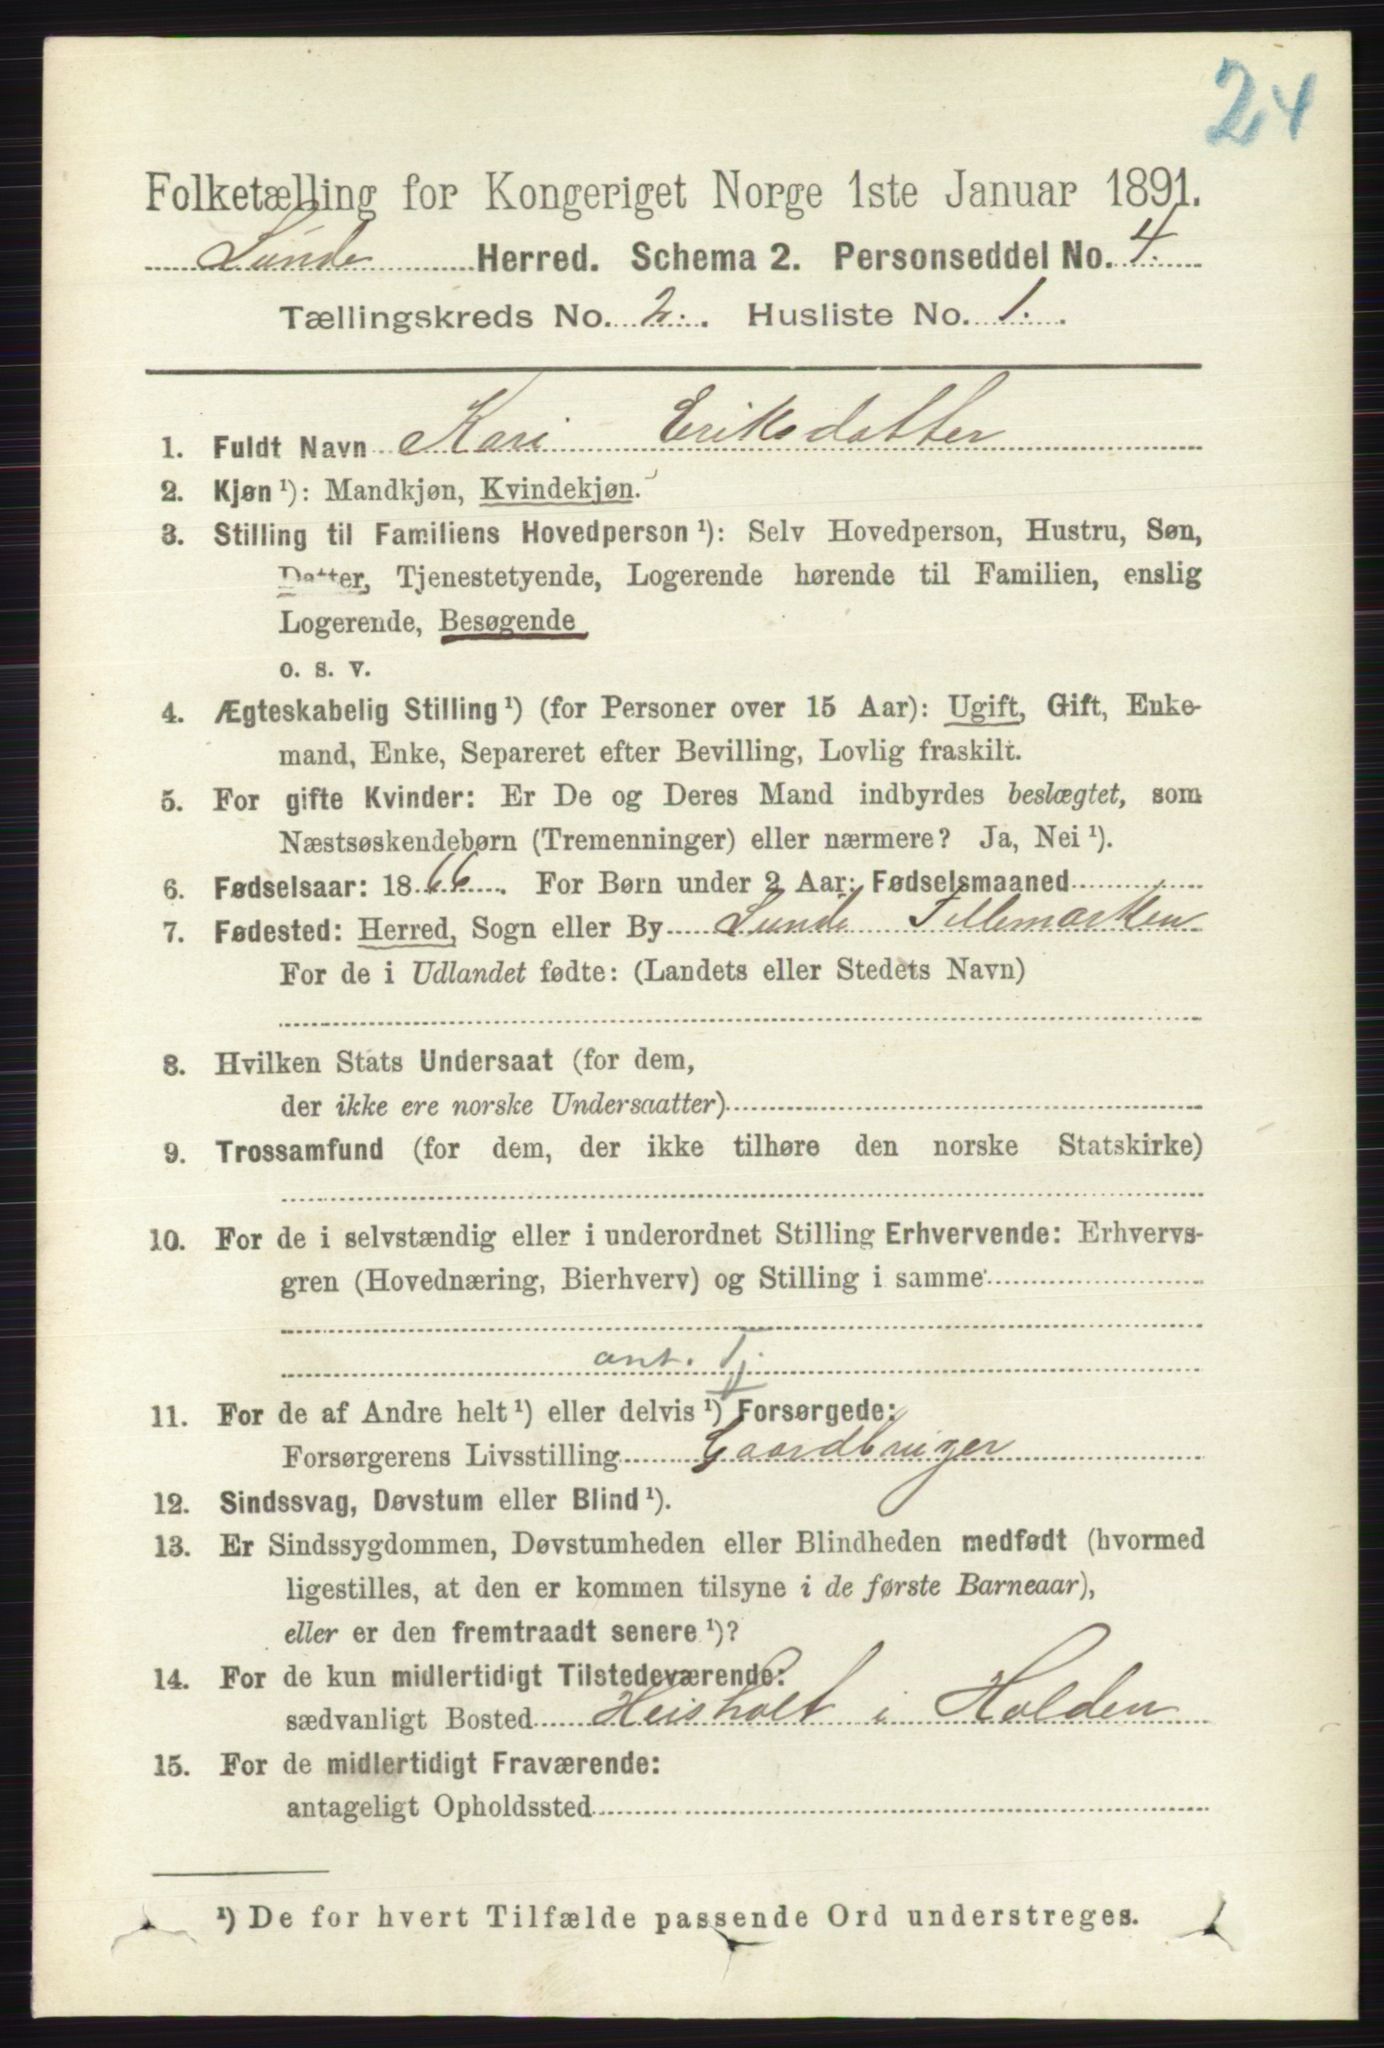 24
Folketælling for Kongeriget Norge 1ste Januar 1891.
Lunde Herred. Schema 2. Personseddel No. 4.
Tællingskreds No. 2. Husliste No. 1.
1. Fuldt Navn Kari Eriksdatter
2. Kjøn ¹): Mandkjøn, Kvindekjøn.
3. Stilling til Familiens Hovedperson ¹): Selv Hovedperson, Hustru, Søn,
Datter, Tjenestetyende, Logerende hørende til Familien, enslig
Logerende, Besøgende
o. s. v.
4. Ægteskabelig Stilling ¹) (for Personer over 15 Aar): Ugift, Gift, Enke-
mand, Enke, Separeret efter Bevilling, Lovlig fraskilt.
5. For gifte Kvinder: Er De og Deres Mand indbyrdes beslægtet, som
Næstsøskendebørn (Tremenninger) eller nærmere? Ja, Nei ¹).
6. Fødselsaar: 1866. For Børn under 2 Aar: Fødselsmaaned
7. Fødested: Herred, Sogn eller By Lunde Tellemarken
For de i Udlandet fødte: (Landets eller Stedets Navn)
8. Hvilken Stats Undersaat (for dem,
der ikke ere norske Undersaatter)
9. Trossamfund (for dem, der ikke tilhøre den norske Statskirke)
10. For de i selvstændig eller i underordnet Stilling Erhvervende: Erhvervs-
gren (Hovednæring, Bierhverv) og Stilling i samme
ant. Tj.
11. For de af Andre helt ¹) eller delvis ¹) Forsørgede:
Forsørgerens Livsstilling Gaardbruger
12. Sindssvag, Døvstum eller Blind ¹).
13. Er Sindssygdommen, Døvstumheden eller Blindheden medfødt (hvormed
ligestilles, at den er kommen tilsyne i de første Barneaar),
eller er den fremtraadt senere ¹)?
14. For de kun midlertidigt Tilstedeværende:
sædvanligt Bosted Heisholt i Holden
15. For de midlertidigt Fraværende:
antageligt Opholdssted
¹) De for hvert Tilfælde passende Ord understreges.